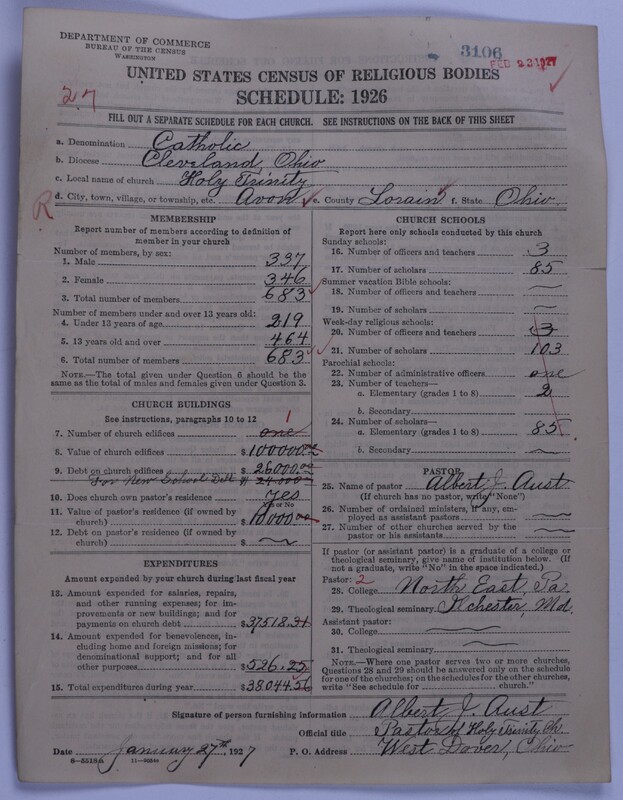 DEPARTMENT OF COMMERCE
BUREAU OF THE CENSUS
WASHINGTON
3106
FEB 23 1927
UNITED STATES CENSUS OF RELIGIOUS BODIES
SCHEDULE: 1926
27
FILL OUT A SEPARATE SCHEDULE FOR EACH CHURCH. SEE INSTRUCTIONS ON THE BACK OF THIS SHEET
a. Denomination Catholic
b. Diocese Cleveland, Ohio
c. Local name of church Holy Trinity
d. City, town, village, or township, etc. Avon e. County Lorain f. State Ohio
R
MEMBERSHIP
Report number of members according to definition of
member in your church
Number of members, by sex:
1. Male 337
2. Female 346
3. Total number of members 683
Number of members under and over 13 years old:
4. Under 13 years of age 219
5. 13 years old and over 464
6. Total number of members 683
NOTE.—The total given under Question 6 should be the
same as the total of males and females given under Question 3.
CHURCH BUILDINGS
See instructions, paragraphs 10 to 12
1
7. Number of church edifices one
8. Value of church edifices $100000.00
9. Debt on church edifices $26000.00
For New School Debt $ 24.000
10. Does church own pastor's residence yes
Yes or No
11. Value of pastor's residence (if owned by
church) $10000.00
12. Debt on pastor's residence (if owned by
church) $
EXPENDITURES
Amount expended by your church during last fiscal year
13. Amount expended for salaries, repairs,
and other running expenses; for im-
provements or new buildings; and for
payments on church debt $37518.31
14. Amount expended for benevolences, in-
cluding home and foreign missions; for
denominational support; and for all
other purposes $526.25
15. Total expenditures during year $38044.56
CHURCH SCHOOLS
Report here only schools conducted by this church
Sunday schools:
16. Number of officers and teachers 3
17. Number of scholars 85
Summer vacation Bible schools:
18. Number of officers and teachers
19. Number of scholars
Week-day religious schools:
20. Number of officers and teachers 3
21. Number of scholars 103
Parochial schools:
22. Number of administrative officers one
23. Number of teachers—
a. Elementary (grades 1 to 8) 2
b. Secondary
24. Number of scholars—
a. Elementary (grades 1 to 8) 85
b. Secondary
PASTOR
25. Name of pastor Albert J. Aust
(If church has no pastor, write "None")
26. Number of ordained ministers, if any, em-
ployed as assistant pastors
27. Number of other churches served by the
pastor or his assistants
If pastor (or assistant pastor) is a graduate of a college or
theological seminary, give name of institution below. (If
not a graduate, write "No" in the space indicated.)
Pastor: 2
28. College North East, Pa.
29. Theological seminary Ilchester, Md
Assistant pastor:
30. College
31. Theological seminary
NOTE.—Where one pastor serves two or more churches,
Questions 28 and 29 should be answered only on the schedule
for one of the churches; on the schedules for the other churches,
write "See schedule for church."
Signature of person furnishing information Albert J. Aust
Official title Pastor of Holy Trinity Ch.
Date January 27th, 1927 P. O. Address West Dover, Ohio
8—5518a